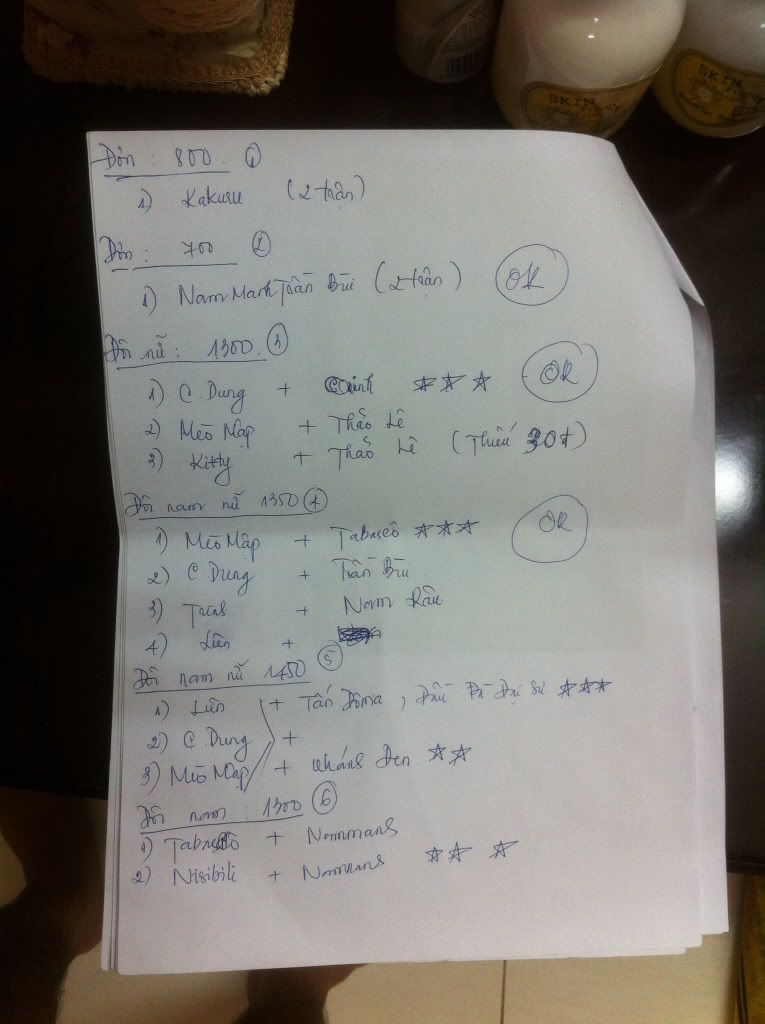 SKIN
SKIN
Đơn : 800. 1
1) Kakuru (2 trận)
Đơn : 700 2
1) Nam Manh Trần Bùi (2 trận) OK
Đôi nữ : 1300. 3
1) C. Dung + ☆☆☆ OK
2) Mèo Mập + Thảo Lê
3) Kitty + Thảo Lê (Thiếu 30đ)
Đôi nam nữ 1350 4
1) Mèo Mập + Tabascô ☆☆☆ OK
2) C Dung + Trần Bùi
3) + Nam Râu
4) Liên +
Đôi nam nữ 1450 5
1) Liên + Tấn Dôma , ☆☆☆
2) C. Dung +
3) Mèo Mập + Kháns Đen ☆☆
Đôi nam : 1300 6
1) + Nammans
2) Nisibili + Nammans ☆☆ ☆